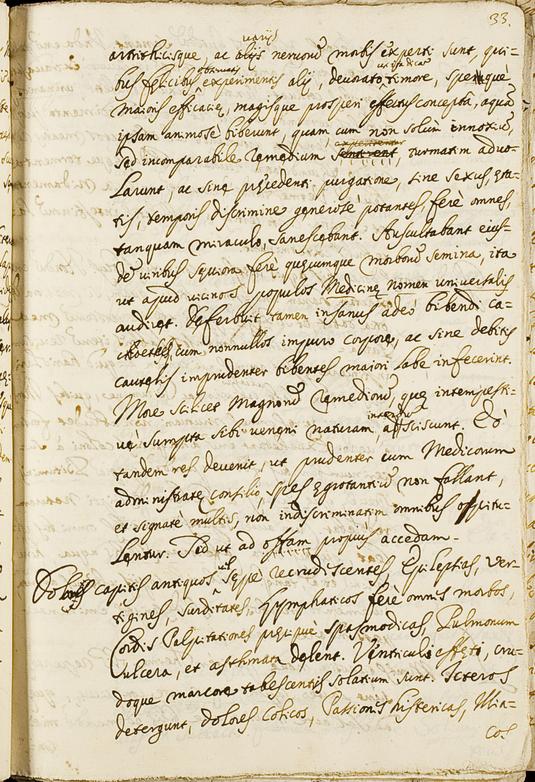 33.
varijs
arthriticisque, ac alijs nervorum morbis experti sunt, qui=
bus felicibus experimentis alij, devorato timore, spequè
maioris efficaciæ, magisque prosperi effectus conceptâ, aquã
ipsam animosè biberunt, quam cum non solum innoxiũ,
experirentur
sed incomparabile remedium sentirent, turmatim advo=
larunt, ac sine præcedenti purgatione, sine sexus, æta=
tis, temporis discrimine generosè potantes, ferè omnes,
tanquam miraculo, sanescebant. Auscultabant eius=
dẽ viribus sæviora ferè quæcumque morborũ semina, ita
ut apud vicinos populos Medicinæ nomen universalis
audiret. Deferbuit tamen insanus adeò bibendi ca=
choethes, cum nonnullos impuro corpore, ac sine debitis
cautelis imprudenter bibentes maiori labe infecerint.
More scilicet Magnorũ remediorũ, quæ intempesti=
vè sumpta sibi veneni naturam adsciscunt. Eò
tandem res devenit, ut prudenter cum Medicorum
administrata consilio, spes ægrotantiũ non fallant,
et signatè multis, non indiscriminatim omnibus opitu=
lentur. Sed ut ad offam propiùs accedam.
Dolores capitis antiquos vel sæpè recrudiscentes, Epilepsias, Ver=
tigines, surditates, Lymphaticos ferè omnes morbos,
Cordis Palpitationes præcipuè spasmodicas, Pulmonum
Ulcera, et asthmata delent. Ventriculo effeto, cru=
doque marcore tabescentis solatium sunt. Icteros
detergunt, dolores Colicos, Passiones histericas, Illia=
cos